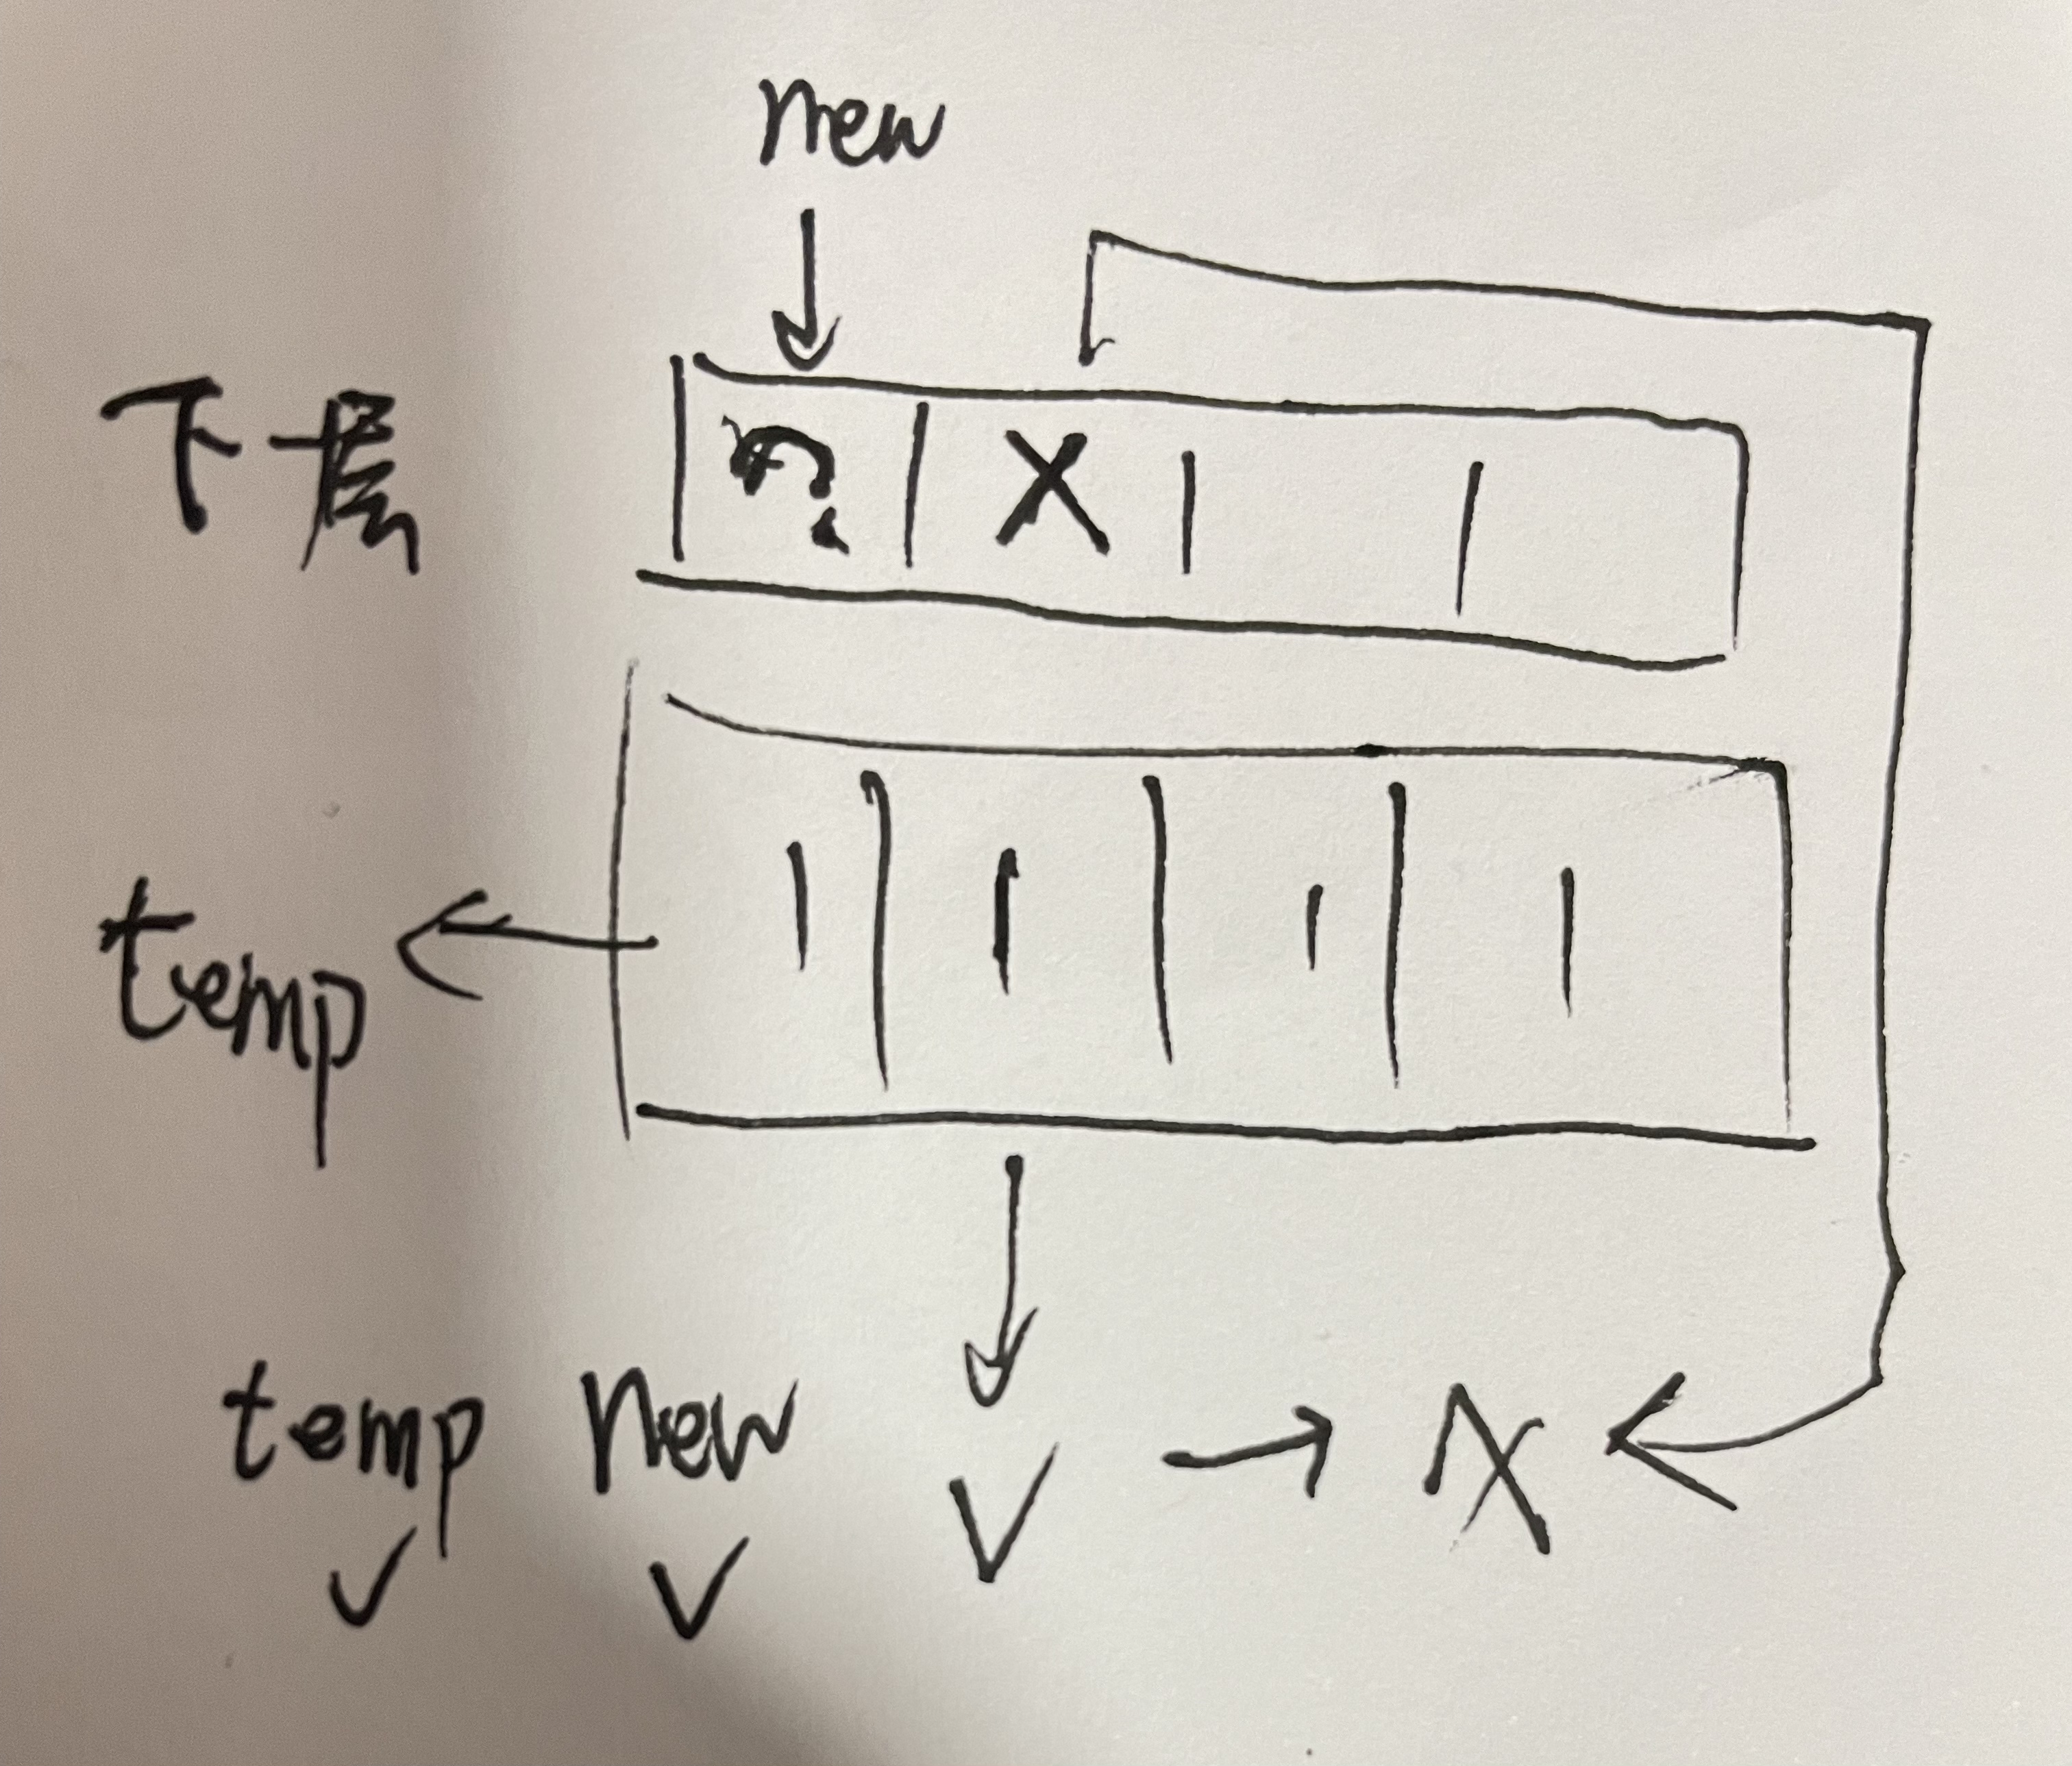 new
下层
X
temp
temp new